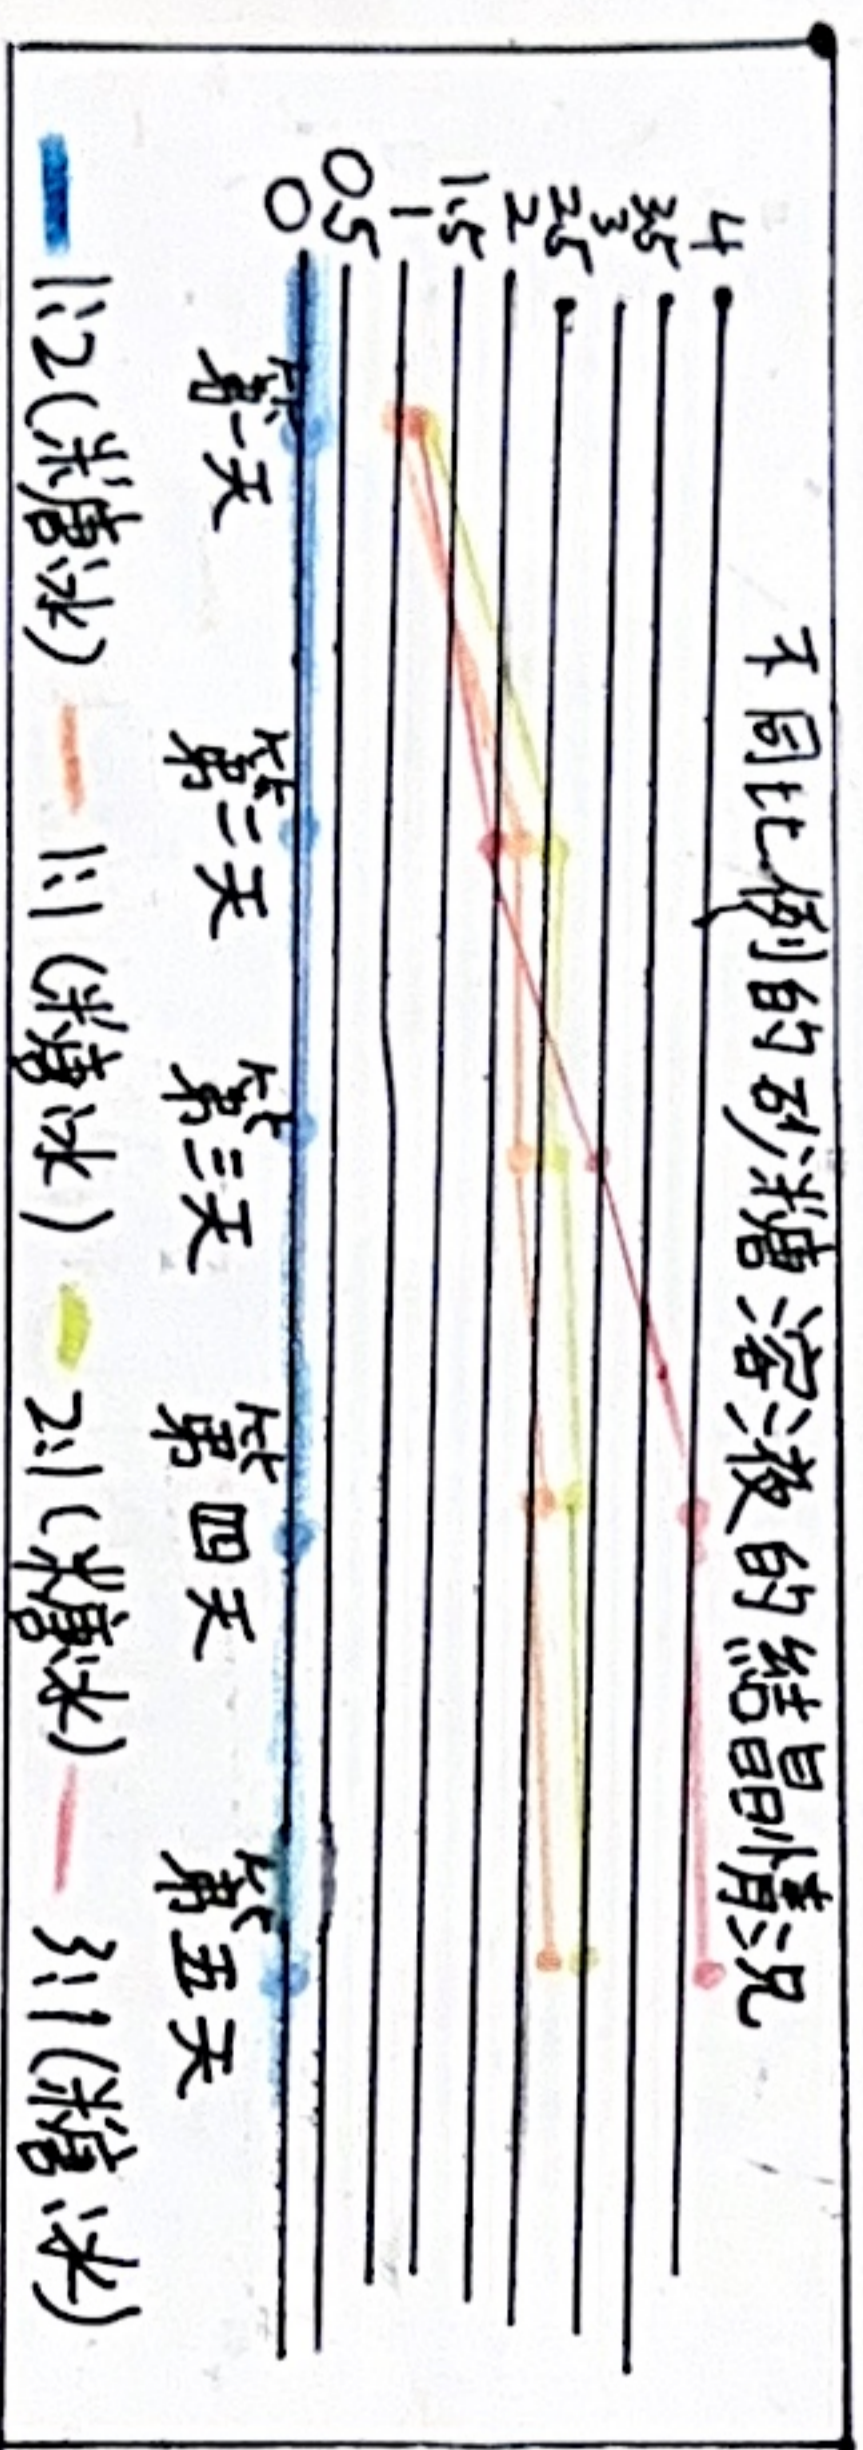 不同比例的砂糖溶液的結晶情況
4
3.5
3
2.5
2
1.5
1
0.5
0
第一天 第二天 第三天 第四天 第五天
1:2(糖水) 1:1(糖水) 2:1(糖水) 3:1(糖水)